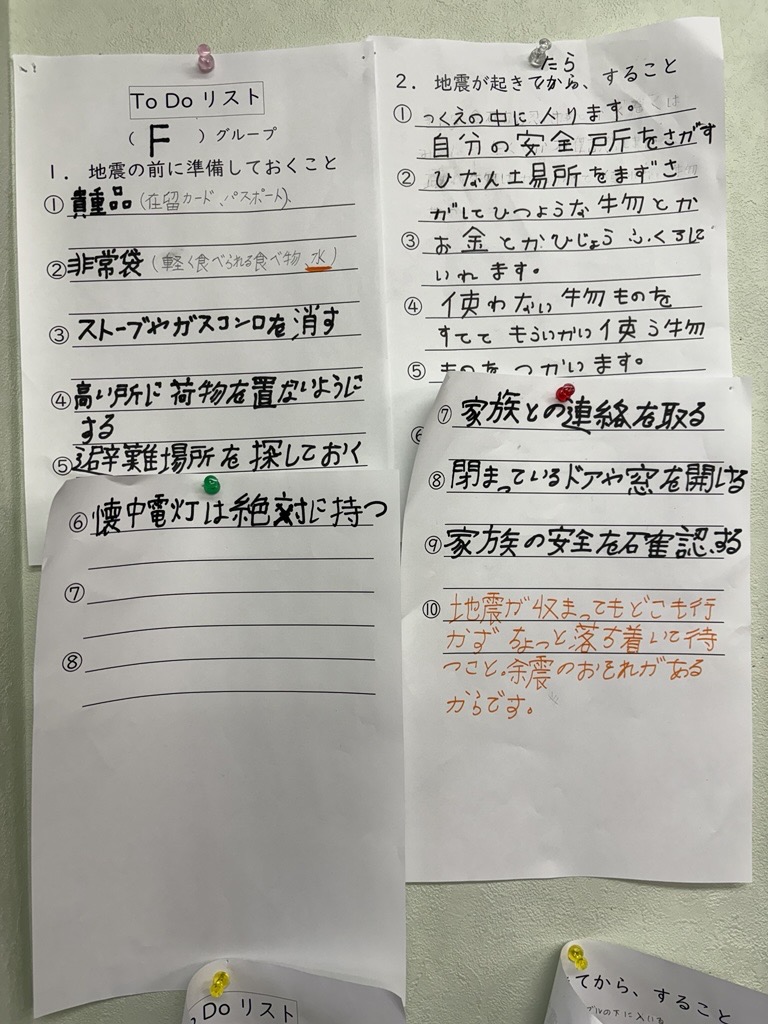 To Do リスト
( F ) グループ
1. 地震の前に準備しておくこと
① 貴重品(在留カード、パスポート)、
② 非常袋(軽く食べられる食べ物、水)
③ ストーブやガスコンロを消す
④ 高い所に荷物を置ないように
する
⑤ 避難場所を探しておく
⑥ 懐中電灯は絶対に持つ
⑦
⑧
たら
2. 地震が起きてから、すること
① つくえの中に入ります。
自分の安全戸所をさがす
② ひなん土易所をまずさ
がしてひつような牛勿とか
③ お金とかひじょうふくろに
いれます。
④ 使わない牛勿ものを
すてて もういがい使う牛勿
⑤ ものをつかいます。
⑥
⑦ 家族との連絡を取る
⑧ 閉まっているドアや窓を開ける
⑨ 家族の安全を確認する
⑩ 地震が収まってもどこも行
かず ちょっと落ち着いて待
つこと。余震のおそれがある
からです。
Do リスト
てから、すること